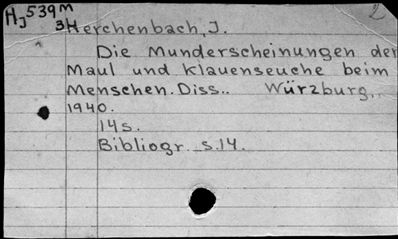 HJ539M 2
3Herchenbach, J.
Die Munderscheinungen der
Maul und Klauenseuche beim
Menschen. Diss.. Würzburg,.
1940.
14s.
Bibliogr. s.14.